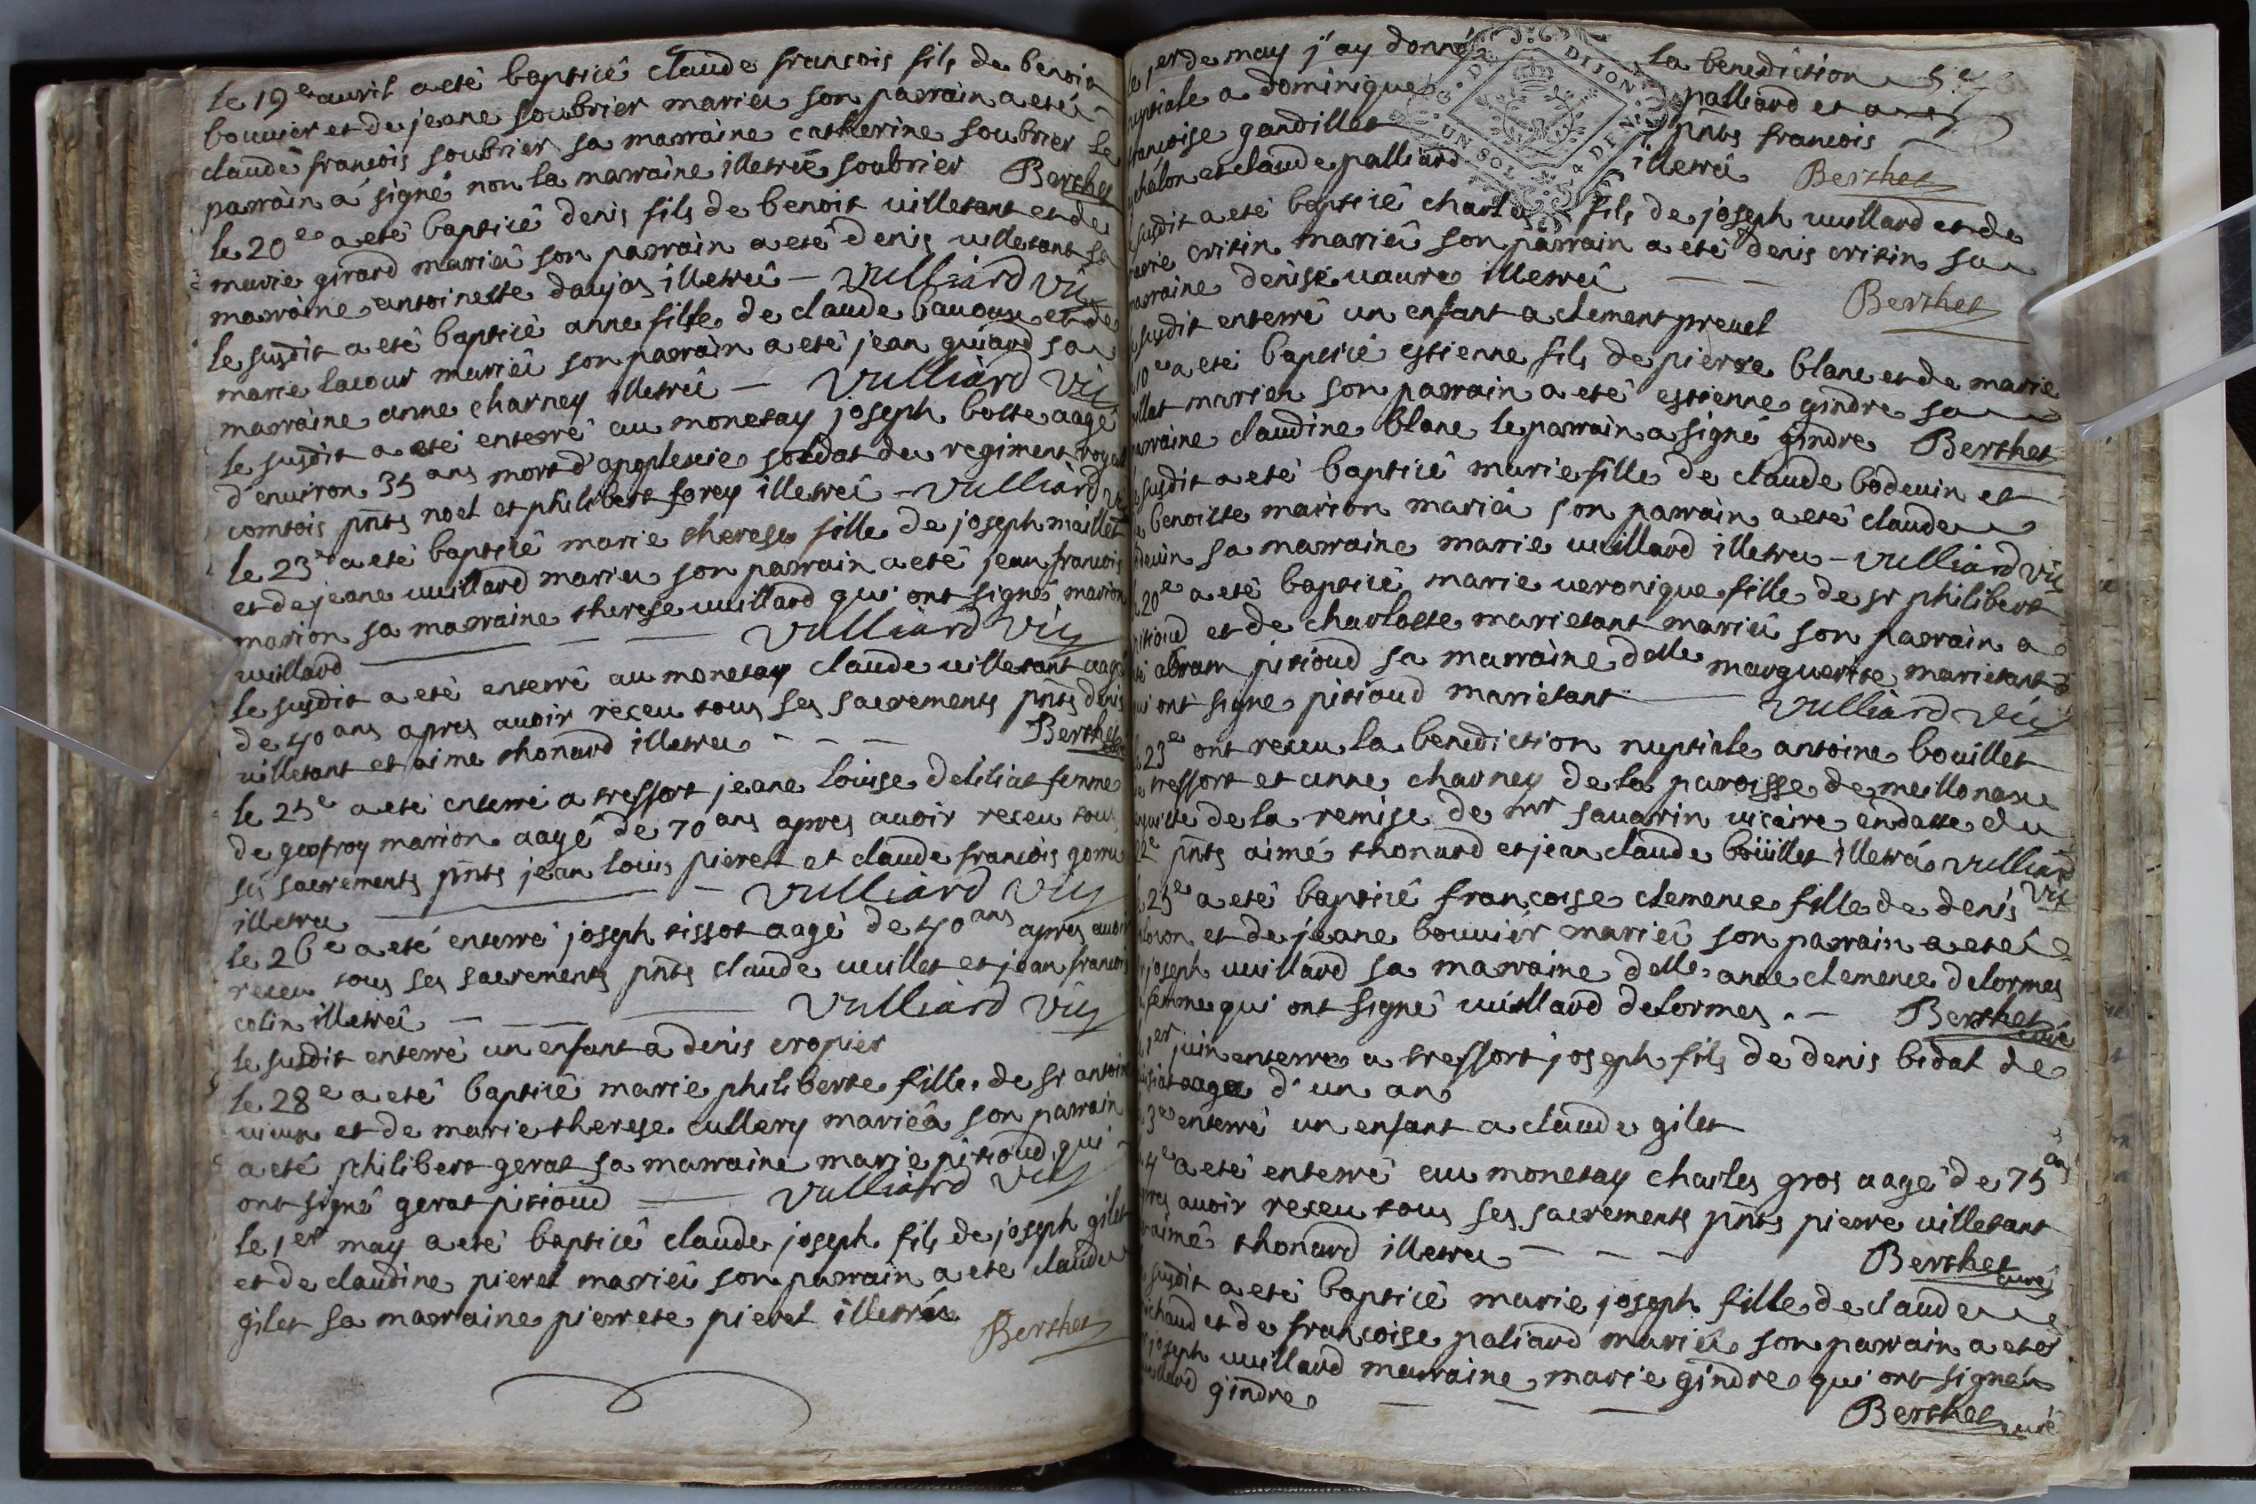 le 19e avril a eté bapticé claude francois fils de benoi
bouvier et de jeane soubrier mariez son parrain a eté
claude francois soubrier sa marraine catherine soubrier le
parrain a signé non la marraine illetrée soubrier Berthet
le 20e a eté bapticé denis fils de benoit villetant et de
marie girard mariez son parrain a eté denis villetant sa
marraine antoinette daujas illetrez - Vulliard vic
le susdit a eté bapticé anne fille de claude bavoux et de
marie lacour mariez son parrain a eté jean guiard sa
marraine anne charney illetrez - Vulliard vic
le susdit a eté enterré au monetay joseph botte aagé
d'environ 35 ans mort d'apoplexie soldat du regiment royal
comtois pnts noel et philibert forey illetrez - Vulliard vic
le 23e a eté bapticé marie therese fille de joseph maillet
et de jeane vuillard mariez son parrain a eté jean francois
marion sa marraine therese vuillard qui ont signé marion
vuillard Vulliard vic
le susdit a eté enterré au monetay claude villetant aagé
de 40 ans apres avoir receu tous ses sacrements pnts denis
villetant et aime thonard illetrez - - - Berthet
le 25e a eté enterré a tressort jeane louise deliliat femme
de geofroy marion aagé de 70 ans apres avoir receu tous
ses sacrements pnts jean louis pieret et claude francois
illetrez - Vulliard vic
le 26e a eté enterré joseph tissot aagé de 40 ans apres avoir
receu tous ses sacrements pnts claude vuillet et jean francois
colin illetrez - Vulliard vic
le susdit enterré un enfant a denis cropier
le 28e a eté bapticé marie philiberte fille de sr antoine
et de marie therese cullery mariez son parrain
a eté philibert gerat sa marraine marie pitioud qui
ont signé gerat pitioud - Vulliard vic
le 1er may a eté bapticé claude joseph fils de joseph gilet
et de claudine pierel mariez son parrain a eté claude
gilet sa marraine pierrete pierel illetrez Berthet
le 1er de may j'ay donné la benediction
nuptiale a dominique palliard et a
francoise gandillet pnts francois
chalon et claude palliard illetrez Berthet
susdit a eté bapticé charle fils de joseph vuillard et de
critin mariez son parrain a eté denis critin sa
marraine denise vaure illetrez - - Berthet
susdit enterré un enfant a clement prevel
10e a eté bapticé estienne fils de pierre blanc et de marie
mariez son parrain a eté estienne gindre sa
marraine claudine blanc le parrain a signé gindre Berthet
susdit a eté bapticé marie fille de claude bodevin et
benoitte marion mariez son parrain a eté claude
sa marraine marie vuillard illetrez - Vulliard vic
20e a eté bapticé marie veronique fille de sr philibert
pitioud et de charlotte marietant mariez son parrain a
abram pitioud sa marraine delle marguerite marietant
ont signe pitioud marietant Vulliard vic
23e ont receu la benediction nuptiale antoine bouillet
tressort et anne charney de la paroisse de meillonaz
de la remise de mr savarin vicaire en datte du
22e pnts aimé thonard et jean claude boüillet illetrez Vulliard
vic
25e a eté bapticé francoise clemence fille de denis
et de jeane bouvier mariez son parrain a eté
joseph vuillard sa marraine delle anne clemence delormes
femme qui ont signé vuillard delormes . - Berthet curé
1er juin enterré a tressort joseph fils de denis bidat de
aagé d'un an
3e enterré un enfant a claude gilet
4e a eté enterré au monetay charles gros aagé de 75 ans
avoir receu tous ses sacrements pnts pierre villetant
aimé thonard illetrez - - - Berthet curé
susdit a eté bapticé marie joseph fille de claude
et de francoise paliard mariez son parrain a eté
joseph vuillard marraine marie gindre qui ont signez
gindre - - - Berthet curé